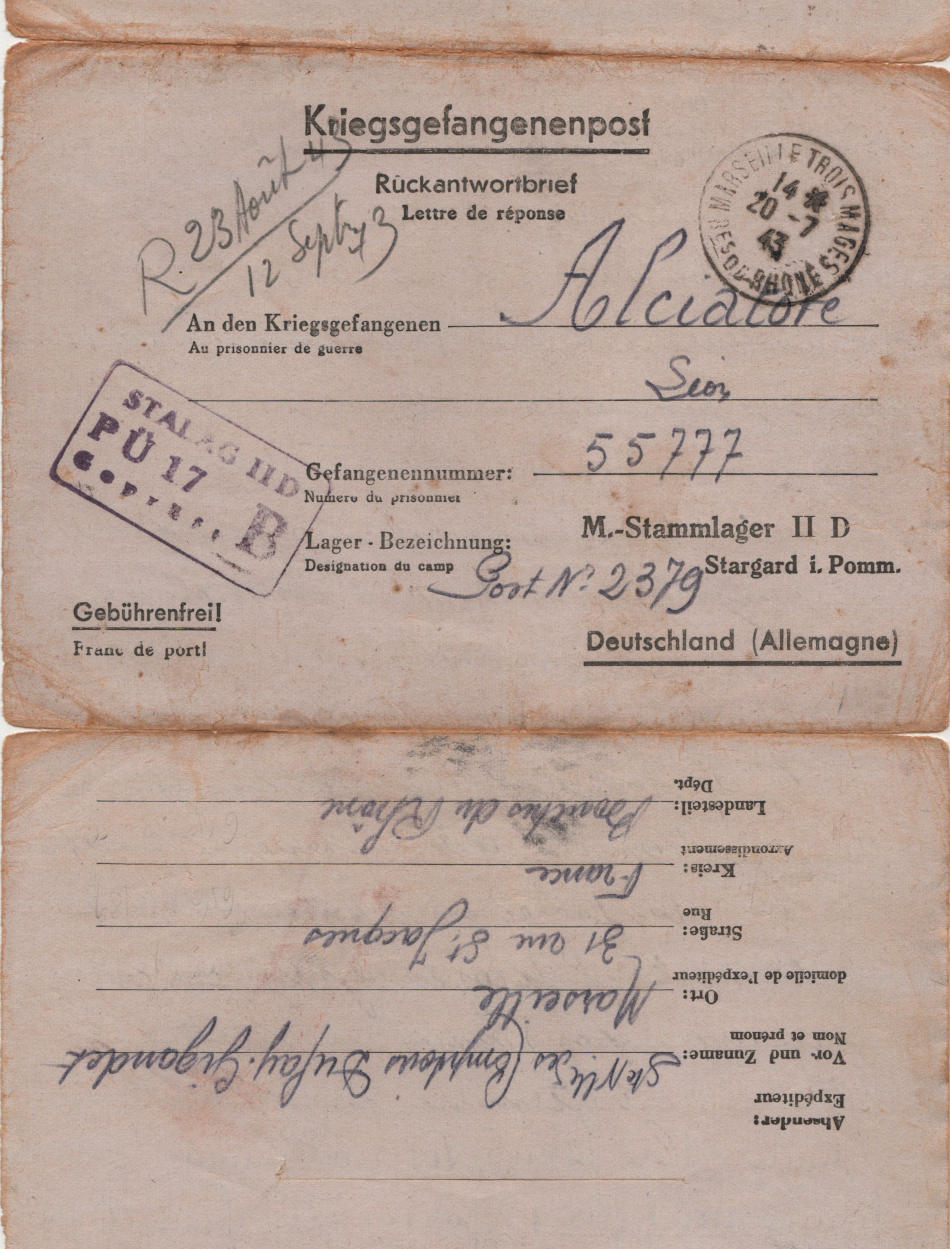 Kriegsgefangenenpost
Rückantwortbrief
Lettre de réponse
R 23 Août 43
12 Septb 43
MARSEILLE TROIS MAGES
14 *
20 -7
43
BCHES DU RHONE
An den Kriegsgefangenen Alciatore
Au prisonnier de guerre
Léon
STALAG II D
PÜ 17
Geprüft
B
Gefangenennummer: 55777
Numéro du prisonnier
Lager-Bezeichnung: M.-Stammlager II D
Désignation du camp
Stargard i. Pomm.
N: 2379
Gebührenfrei!
Franc de port!
Deutschland (Allemagne)
Absender:
Expéditeur
Vor- und Zuname: Ste Nlle des Comptoirs Dufay. Gigandet
Nom et prénom
Ort: Marseille
domicile de l'expéditeur
Straße: 31 rue St. Jacques
Rue
Kreis: France
Arrondissement
Landesteil: Bouches du Rhône
Dépt.